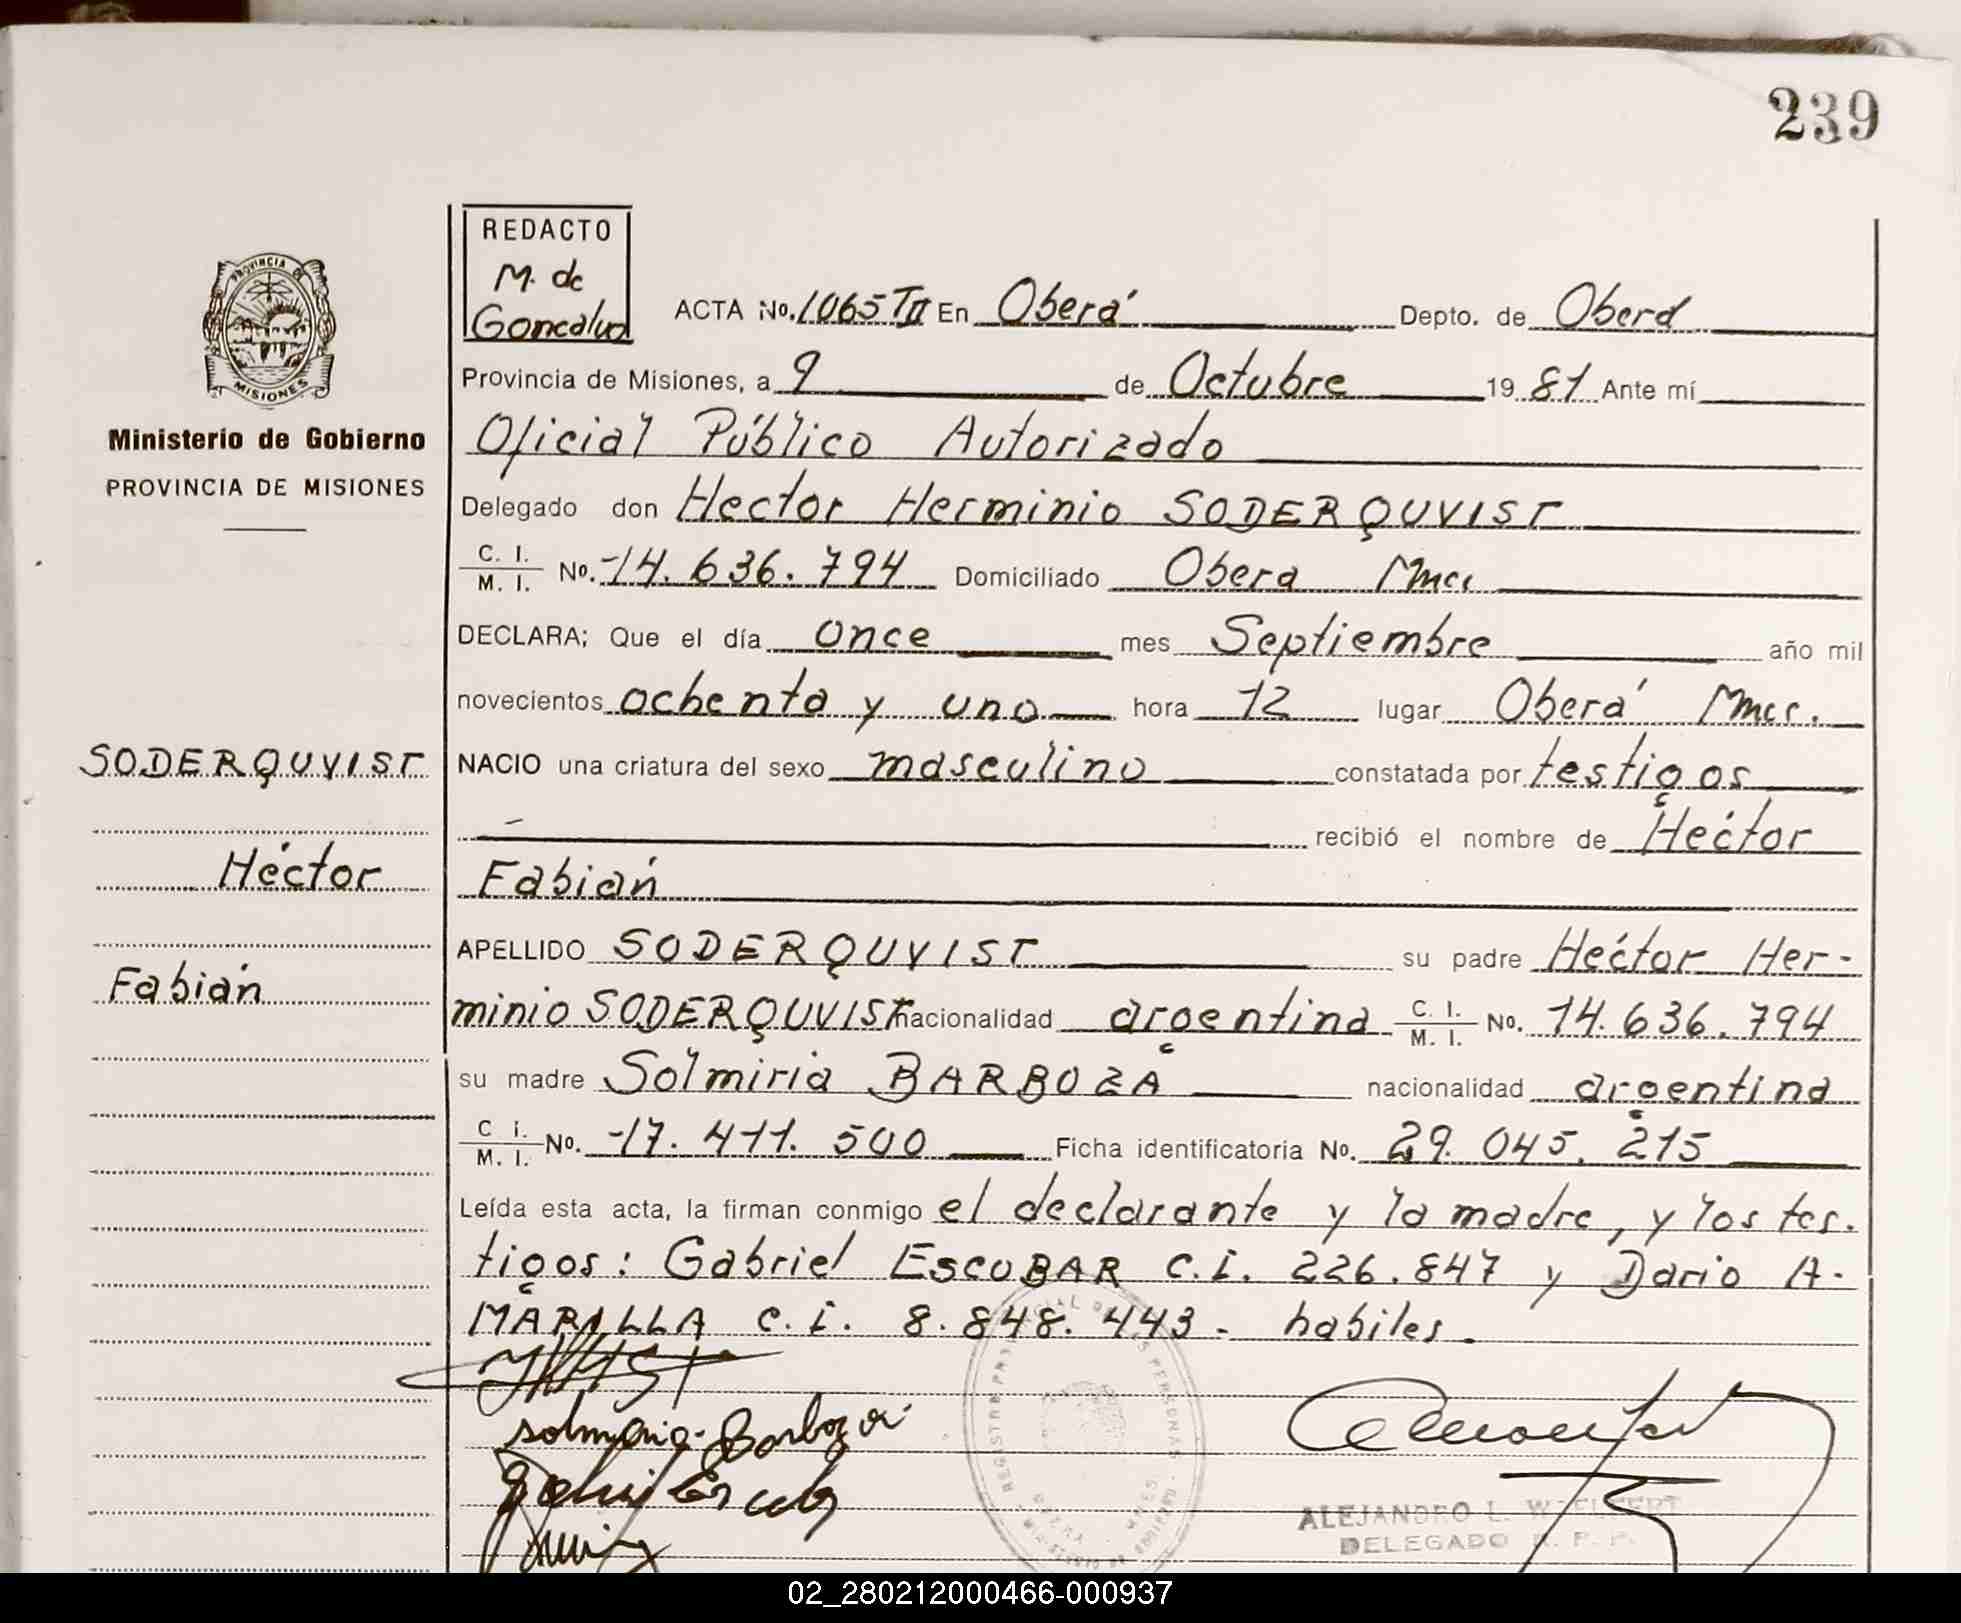 239
REDACTO
M. de
Goncalve
ACTA No. 1065 TII En Oberá Depto. de Oberá
Provincia de Misiones, a 9 de Octubre 1981 Ante mí
Oficial Público Autorizado
Delegado don Hector Herminio SODERQUVIST
C. I. / M. I. No. 14.636.794 Domiciliado Obera Mnes
DECLARA; Que el día once mes Septiembre año mil
novecientos ochenta y uno hora 12 lugar Oberá Mnes.
NACIO una criatura del sexo masculino constatada por testigos
recibió el nombre de Héctor
Fabián
APELLIDO SODERQUVIST su padre Héctor Her-
minio SODERQUVIST nacionalidad argentina C. I. / M. I. No. 14.636.794
su madre Solmiria BARBOZA nacionalidad argentina
C i. / M. I. No. 17.411.500 Ficha identificatoria No. 29.045.215
Leída esta acta, la firman conmigo el declarante y la madre, y los tes.
tigos: Gabriel ESCOBAR C.i. 226.847 y Dario A.
MARILLA C.i. 8.848.443.- habiles.
PROVINCIA DE
MISIONES
Ministerio de Gobierno
PROVINCIA DE MISIONES
SODERQUVIST
Héctor
Fabián
Barboza
REGISTRO PROVINCIAL DE LAS PERSONAS
ALEJANDRO L.
DELEGADO R. P. P.
02_280212000466-000937